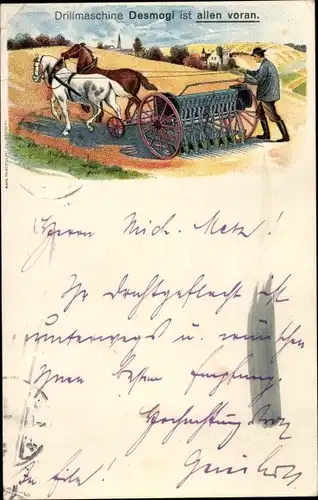 Drillmaschine Desmogi ist allen voran.
Herrn Mich. Metz!
Ihr Drahtgeflecht ist
unterwegs u. wünschen
Ihnen besten Empfang.
Hochachtungsvoll
In Eile!